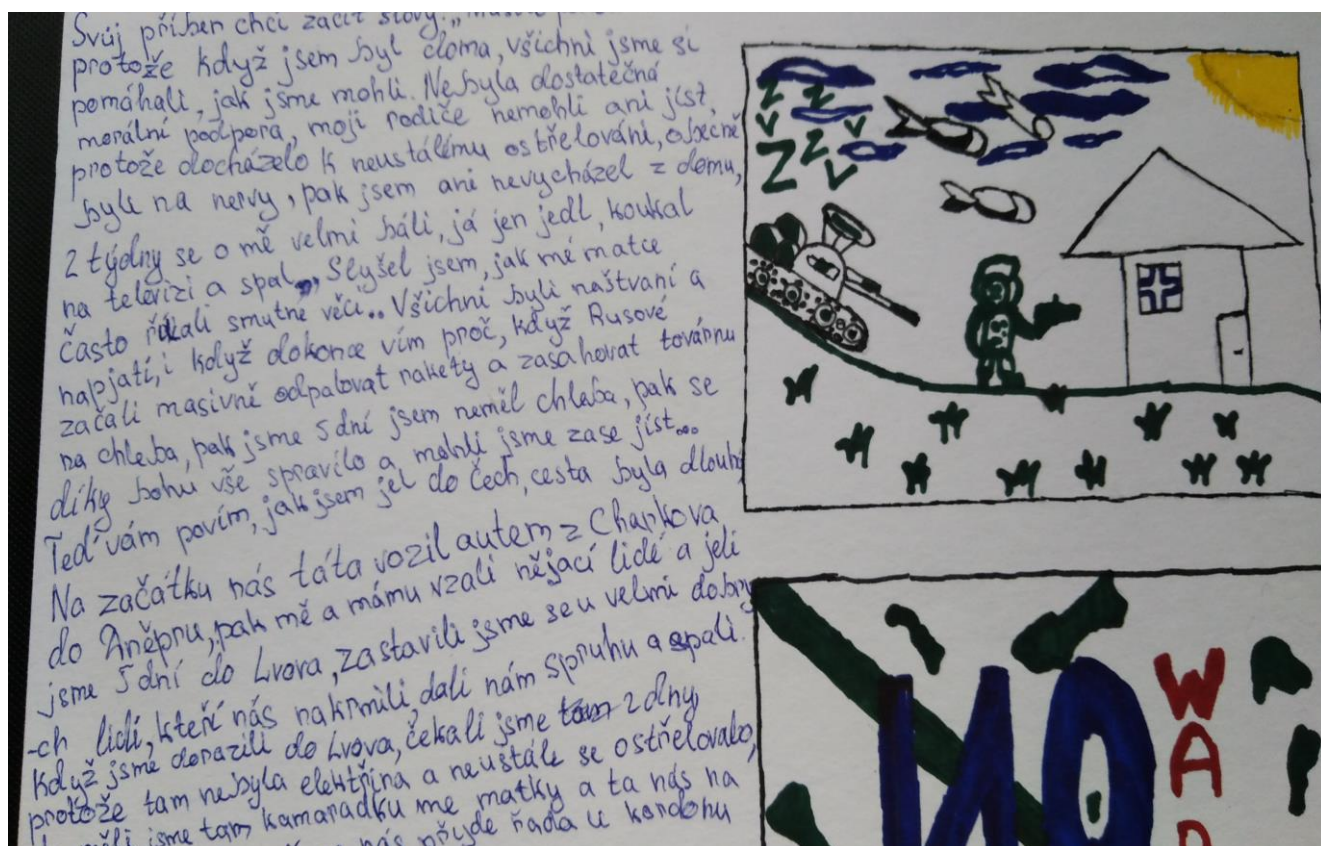 Svůj příběh chci začít slovy: „
protože když jsem byl doma, všichni jsme si
pomáhali, jak jsme mohli. Nebyla dostatečná
morální podpora, moji rodiče nemohli ani jíst,
protože docházelo k neustálému ostřelování, obecně
byli na nervy, pak jsem ani nevycházel z domu,
2 týdny se o mě velmi báli, já jen jedl, koukal
na televizi a spal. Slyšel jsem, jak mé matce
často říkali smutne věci.. Všichni byli naštvaní a
napjatí, i když dokonce vím proč, když Rusové
začali masivně odpalovat rakety a zasahovat továrnu
na chleba, pak jsme 5 dní jsem neměl chleba, pak se
díky bohu vše spravilo a mohli jsme zase jíst...
Teď vám povím, jak jsem jel do Čech, cesta byla dlouhá
Na začátku nás táta vozil autem z Charkova
do Dněpru, pak mě a mámu vzali nějací lidé a jeli
jsme 5 dní do Lvova, zastavili jsme se u velmi dobrý
-ch lidí, kteří nás nakrmili, dali nám spruhu a spali.
Když jsme dorazili do Lvova, čekali jsme tam 2 dny,
protože tam nebyla elektřina a neustále se ostřelovalo,
jsme tam kamaradku me matky a ta nás na
nás přijde řada u kordonu
Z z
z v v
Z z v
NO
WA